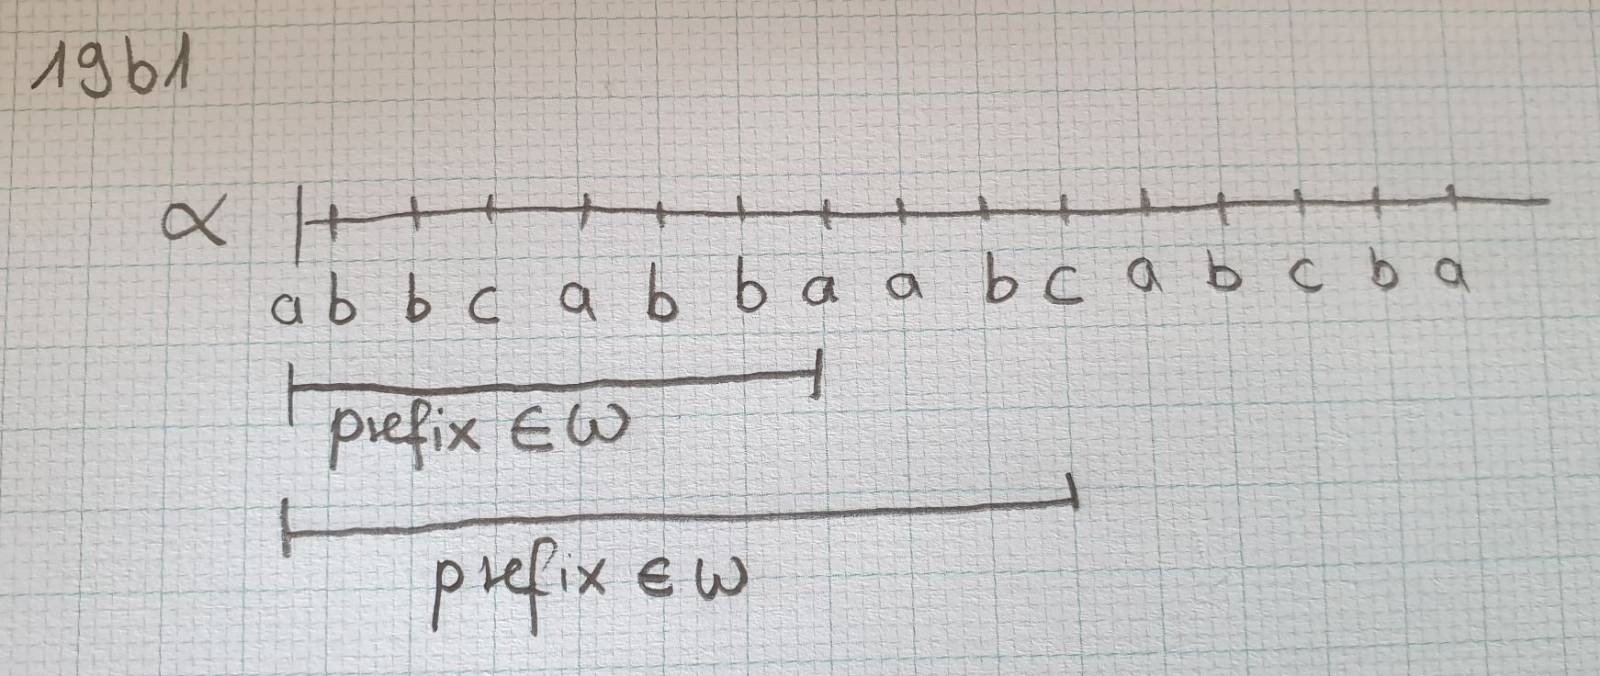 19b1
α
a b b c a b b a a b c a b c b a
prefix ∈ W
prefix ∈ W